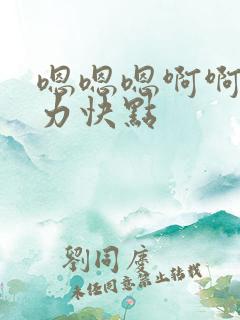 嗯嗯嗯啊啊
力快點
劉同度
未经同意禁止转载